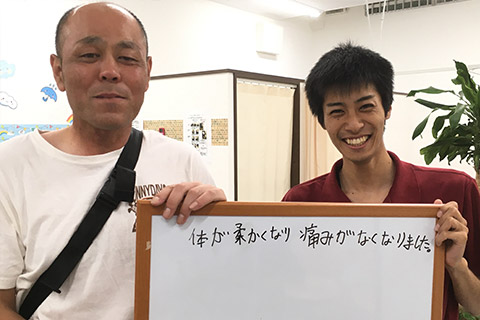 体が柔かくなり 痛みがなくなりました。